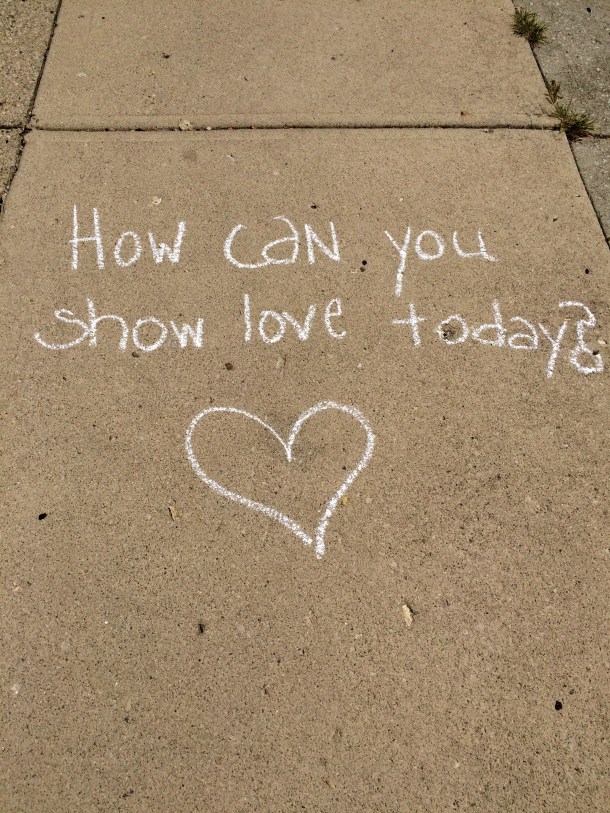 How can you
show love today?